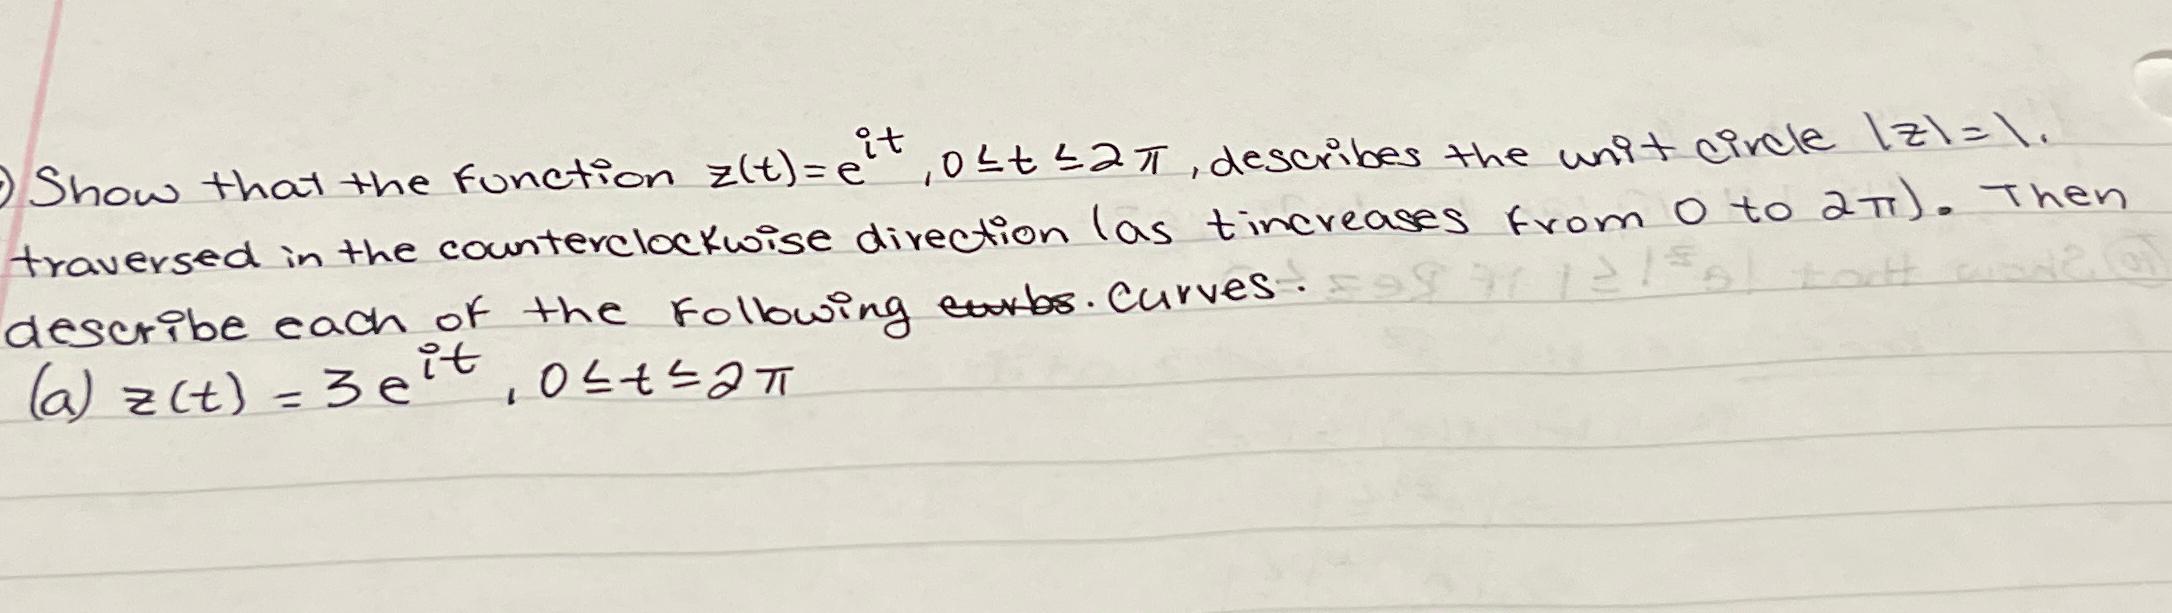 ) Show that the function z(t)=e^{it}, 0≤t≤2π, describes the unit circle |z|=1.
traversed in the counterclockwise direction (as t increases from 0 to 2π). Then
describe each of the following curbs. curves.
(a) z(t) = 3e^{it}, 0≤t≤2π